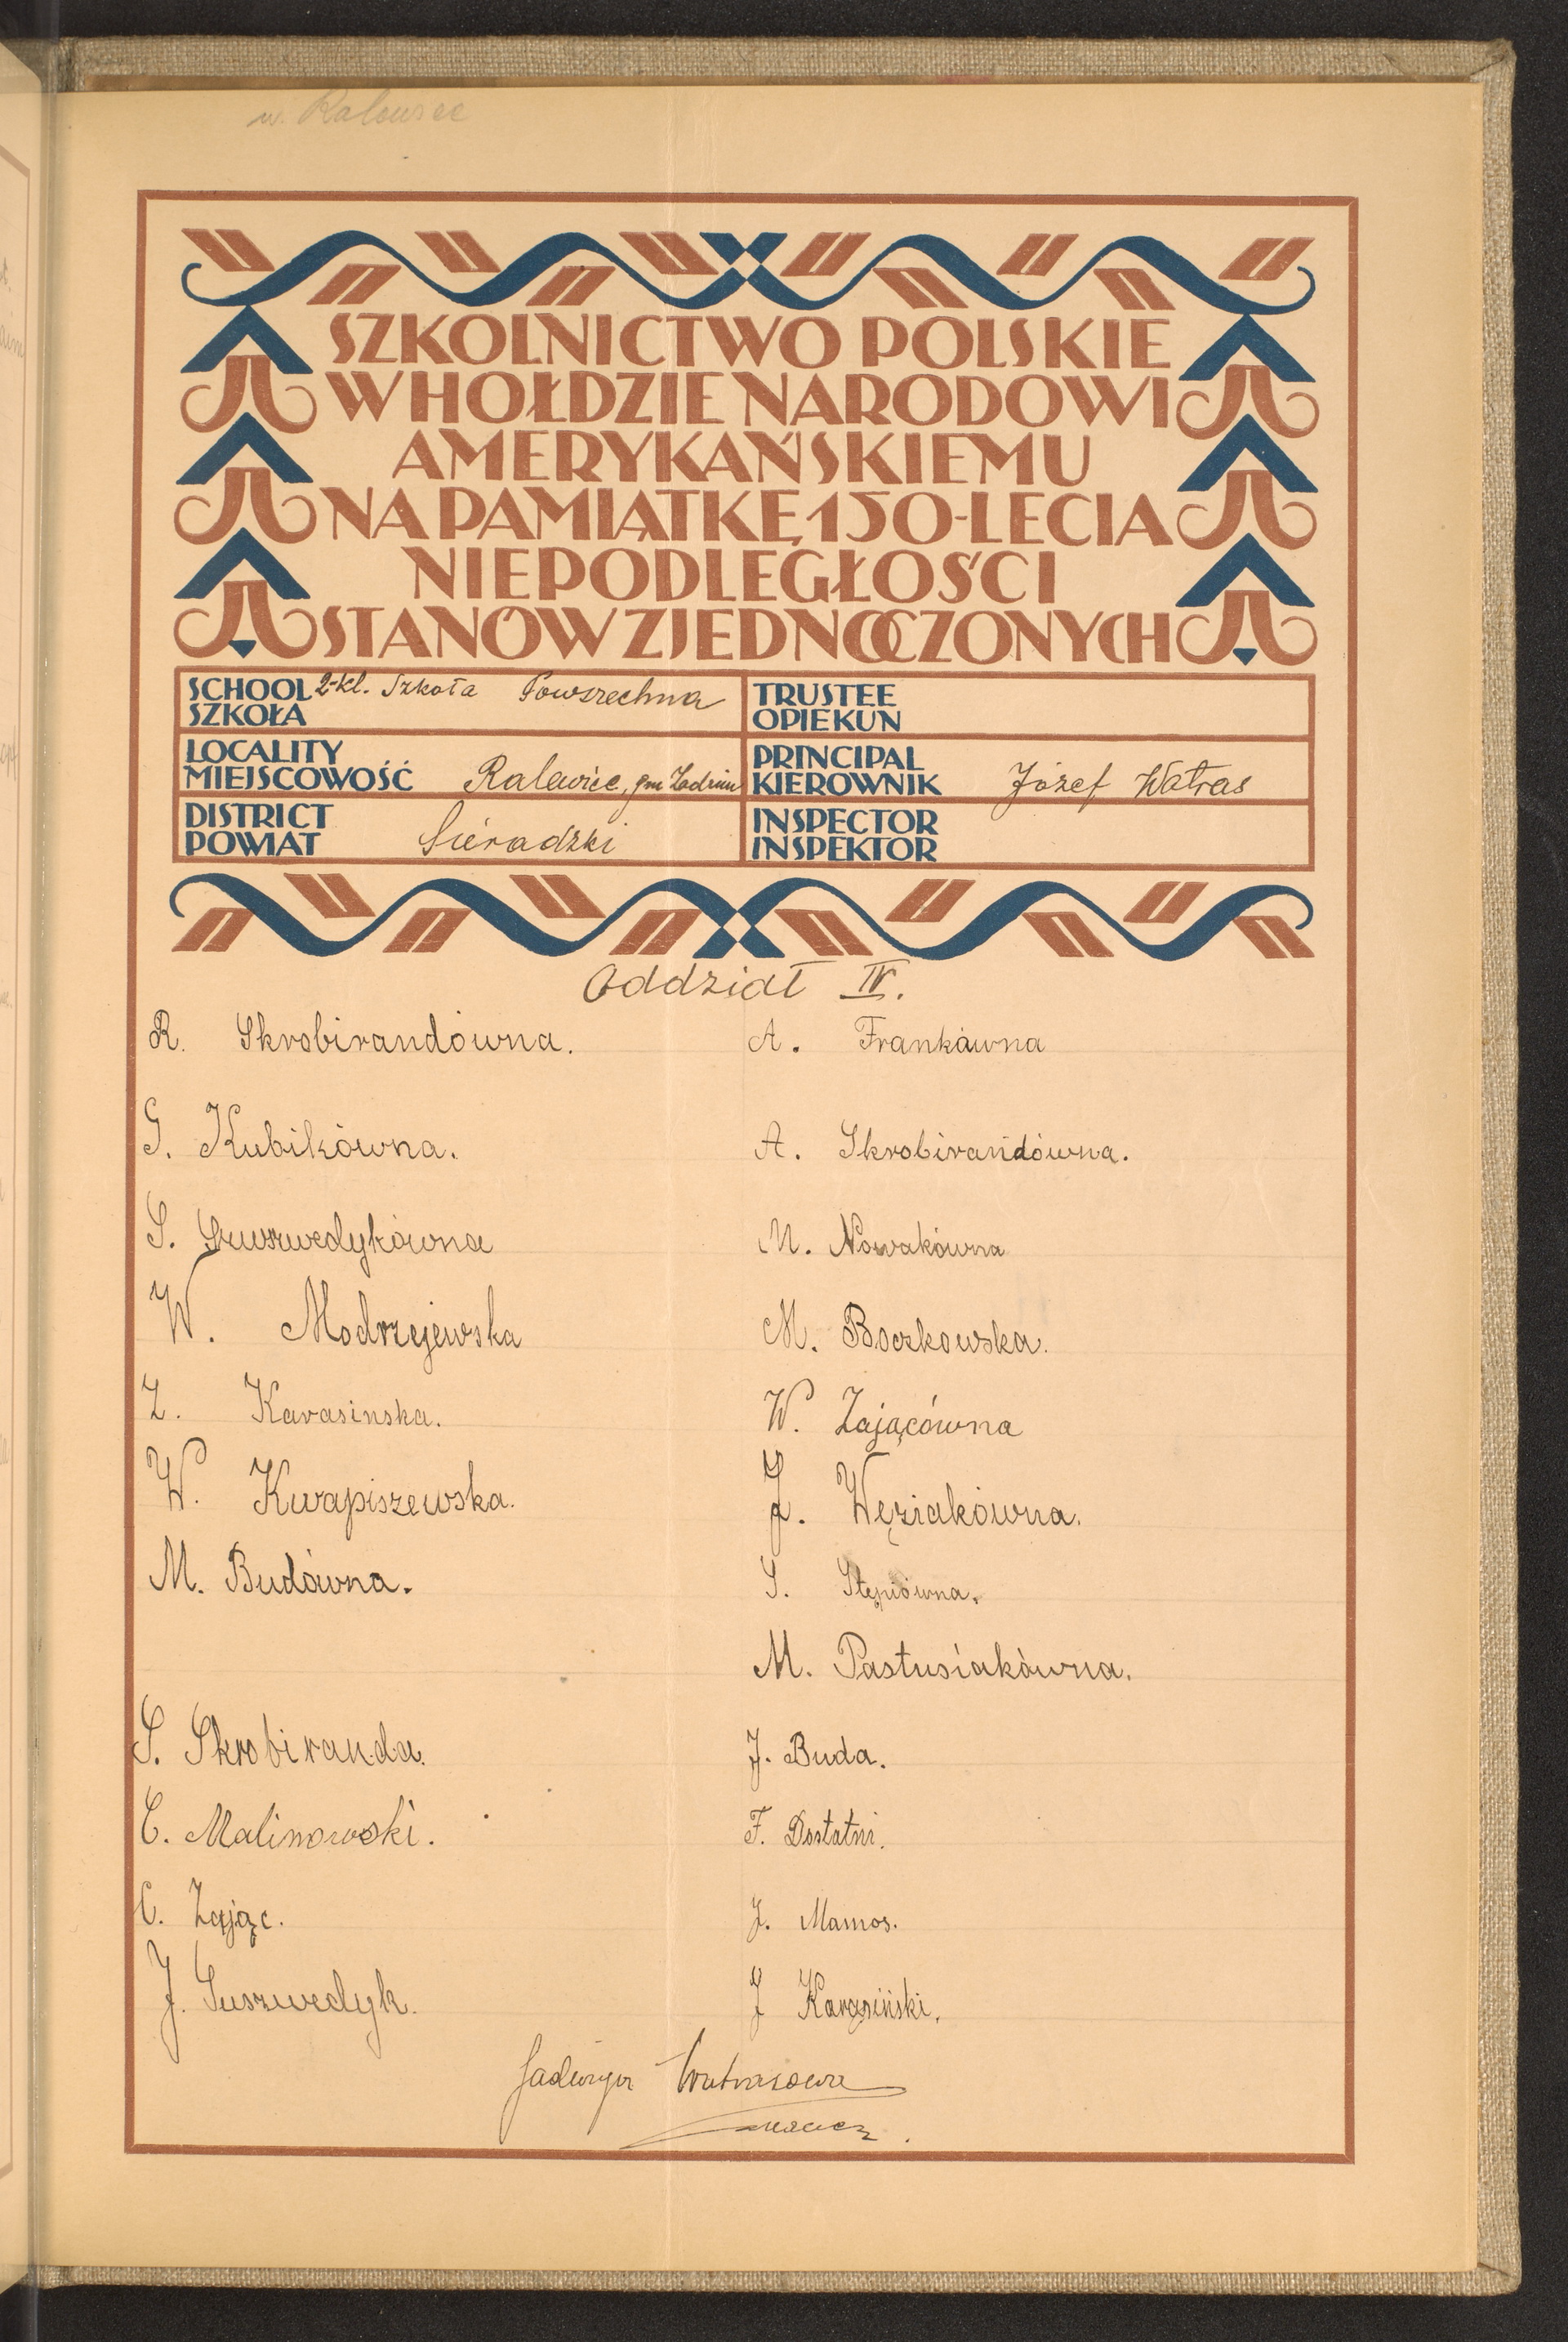 w. Ralewice
SZKOLNICTWO POLSKIE
W HOŁDZIE NARODOWI
AMERYKAŃSKIEMU
NA PAMIĄTKĘ 150-LECIA
NIEPODLEGŁOŚCI
STANÓW ZJEDNOCZONYCH
SCHOOL 2-kl. Szkoła Powszechna
SZKOŁA
LOCALITY
MIEJSCOWOŚĆ Ralewice, gm Zadzim
DISTRICT
POWIAT Sieradzki
TRUSTEE
OPIEKUN
PRINCIPAL
KIEROWNIK Józef Watras
INSPECTOR
INSPEKTOR
Oddział IV.
R. Skrobirandówna.
G. Kubikówna.
S. Suszwedykówna
W. Modrzejewska
Z. Karasinska.
W. Kwapiszewska.
M. Budówna.
S. Skrobiranda.
C. Malinowski.
C. Zając.
J. Suszwedyk.
A. Frankówna
A. Skrobirandówna.
M. Nowakówna
M. Boczkowska.
W. Zającówna
J. Węziakówna.
S. Stępiówna.
M. Pastusiakówna.
J. Buda.
F. Dostatni.
J. Mamos.
J Karasiński.
Jadwiga Watrasowa